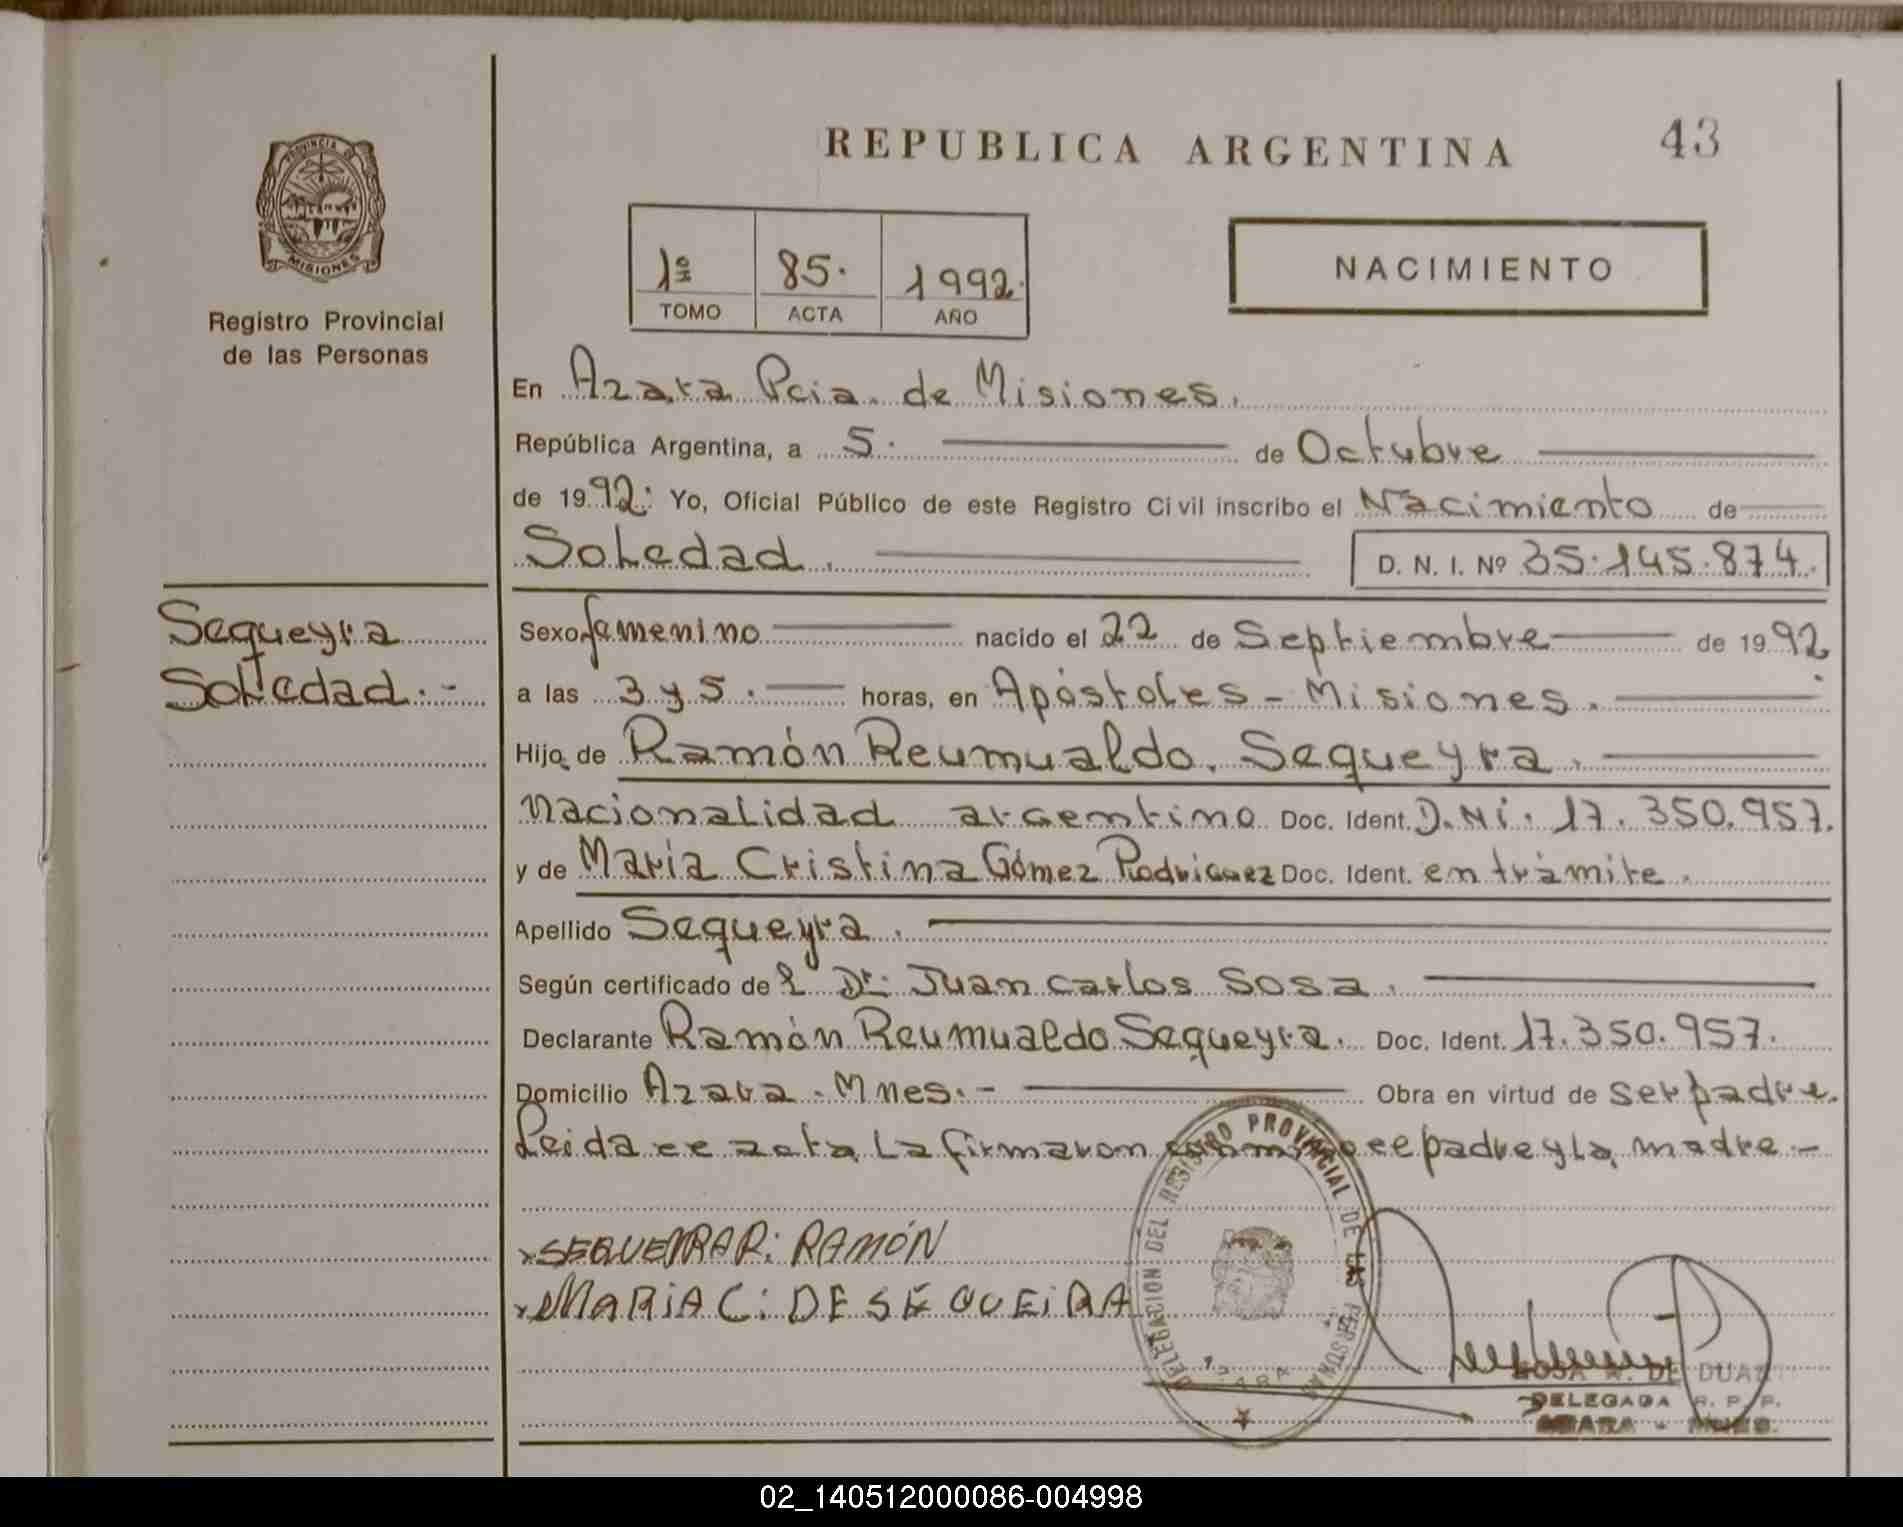 REPUBLICA ARGENTINA
43
PROVINCIA DE
MISIONES
Registro Provincial
de las Personas
1º 85. 1992.
TOMO ACTA AÑO
NACIMIENTO
En Azara Pcia. de Misiones.
República Argentina, a 5. de Octubre
de 1992: Yo, Oficial Público de este Registro Civil inscribo el Nacimiento de
Soledad. D. N. I. Nº 35.145.874.
Sequeyra
Soledad.-
Sexo femenino nacido el 22 de Septiembre de 1992
a las 3 y 5. horas, en Apóstoles - Misiones.
Hijo de Ramón Reumualdo. Sequeyra.
Nacionalidad argentino Doc. Ident. D.Ni. 17.350.957.
y de María Cristina Gómez Rodriguez Doc. Ident. en trámite.
Apellido Sequeyra.
Según certificado de l Dr. Juan Carlos Sosa.
Declarante Ramón Reumualdo Sequeyra. Doc. Ident. 17.350.957.
Domicilio Azara. Mnes.- Obra en virtud de ser padre.
Leida ee acta La firmaron conmigo ee padre y La madre.-
RAMÓN
MARIA C: DE SEQUEIRA
DELEGACION DEL REGISTRO PROVINCIAL DE LAS PERSONAS
AZARA
ROSA A. DE DUARTE
DELEGADA R. P. P.
AZARA - MNES.
02_140512000086-004998